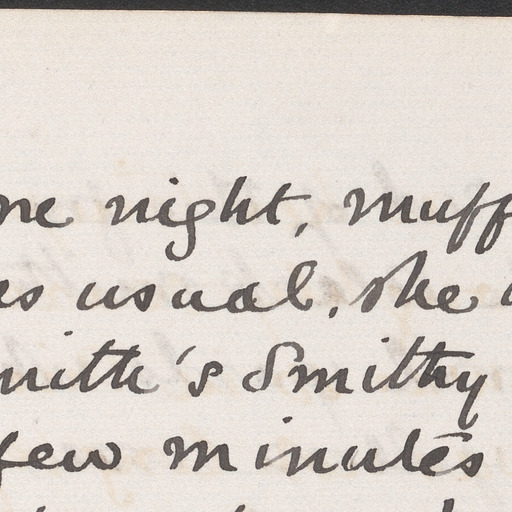 ne night, muff
es usual, she
mith's Smithy
few minutes